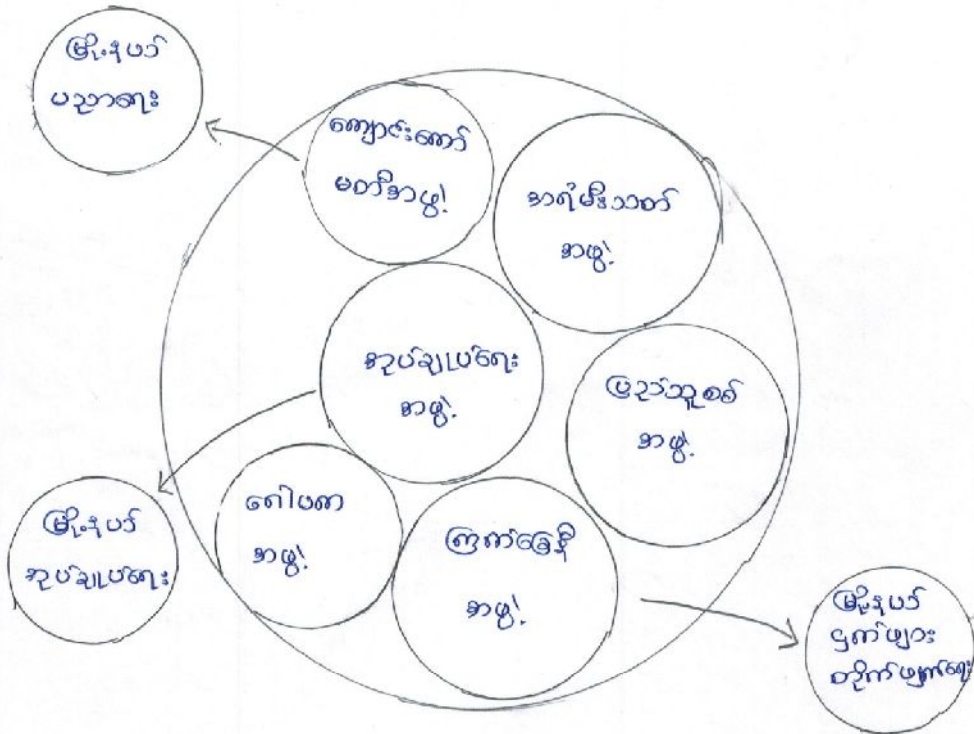 မြို့နယ်
ပညာရေး
ကျောင်းတော်
မတီအဖွဲ့
အရံမီးသတ်
အဖွဲ့
အုပ်ချုပ်ရေး
အဖွဲ့
ပြည်သူ့စစ်
အဖွဲ့
ဂေါပက
အဖွဲ့
ကြက်ခြေနီ
အဖွဲ့
မြို့နယ်
အုပ်ချုပ်ရေး
မြို့နယ်
ငှက်ဖျား
တိုက်ဖျက်ရေး